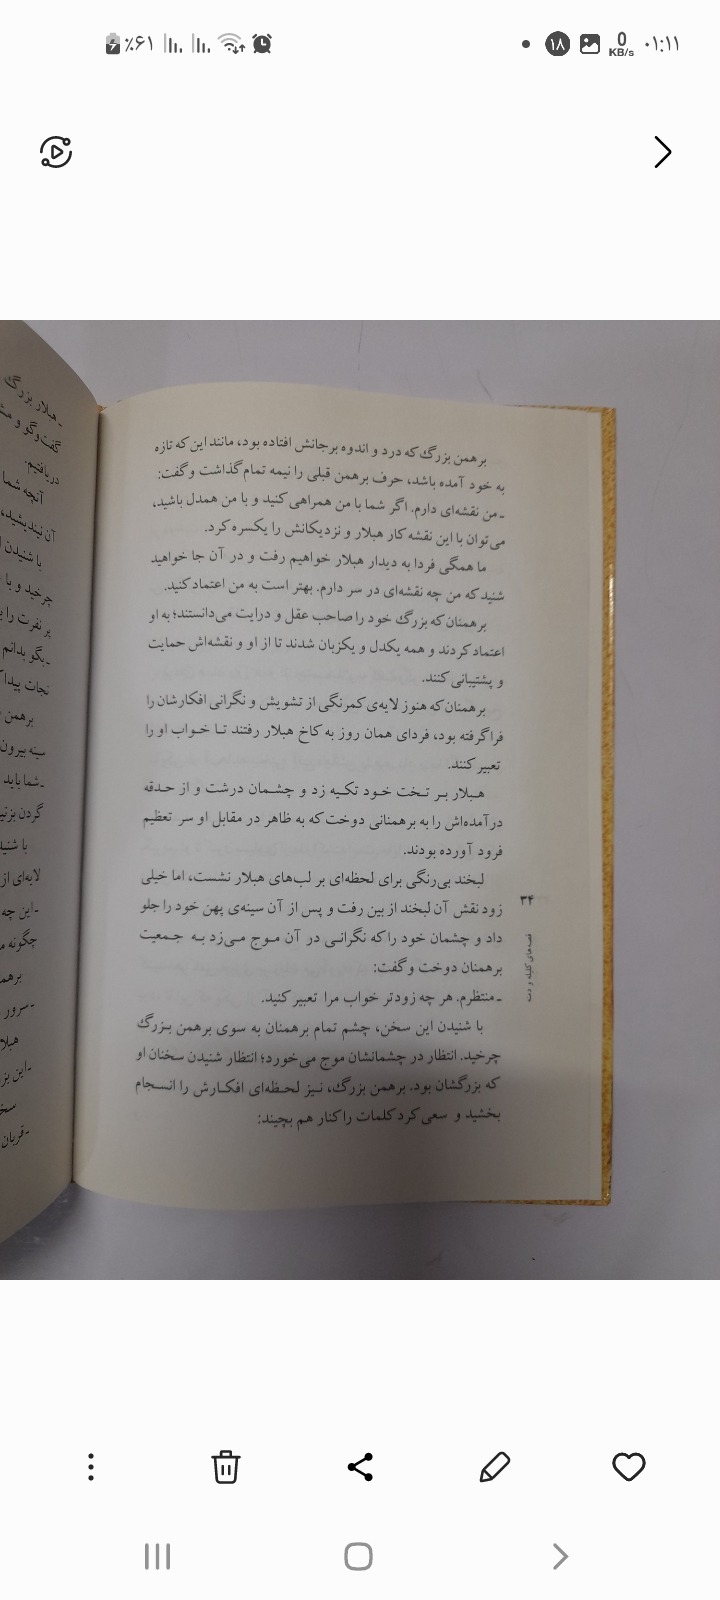 ٪۶۱
۱۸
0
KB/s
۰۱:۱۱
برهمن بزرگ که درد و اندوه برجانش افتاده بود، مانند این که تازه
به خود آمده باشد، حرف برهمن قبلی را نیمه تمام گذاشت و گفت:
ـ من نقشه‌ای دارم. اگر شما با من همراهی کنید و با من همدل باشید،
می‌توان با این نقشه کار هبلار و نزدیکانش را یکسره کرد.
ما همگی فردا به دیدار هبلار خواهیم رفت و در آن جا خواهید
شنید که من چه نقشه‌ای در سر دارم. بهتر است به من اعتماد کنید.
برهمنان که بزرگ خود را صاحب عقل و درایت می‌دانستند؛ به او
اعتماد کردند و همه یکدل و یکزبان شدند تا از او و نقشه‌اش حمایت
و پشتیبانی کنند.
برهمنان که هنوز لایه‌ی کمرنگی از تشویش و نگرانی افکارشان را
فراگرفته بود، فردای همان روز به کاخ هبلار رفتند تـا خـواب او را
تعبیر کنند.
هـبلار بـر تـخت خـود تکـیه زد و چشـمان درشت و از حـدقه
درآمده‌اش را به برهمنانی دوخت که به ظاهر در مقابل او سر تعظیم
فرود آورده بودند.
لبخند بی‌رنگی برای لحظه‌ای بر لب‌های هبلار نشست، اما خیلی
زود نقش آن لبخند از بین رفت و پس از آن سینه‌ی پهن خود را جلو
داد و چشمان خود را که نگرانـی در آن مـوج مـی‌زد بـه جـمعیت
برهمنان دوخت و گفت:
ـ منتظرم. هر چه زودتر خواب مرا تعبیر کنید.
با شنیدن این سخن، چشم تمام برهمنان به سوی برهمن بـزرگ
چرخید. انتظار در چشمانشان موج می‌خورد؛ انتظار شنیدن سخنان او
که بزرگشان بود. برهمن بزرگ، نـیز لحـظه‌ای افکـارش را انسـجام
بخشید و سعی کرد کلمات را کنار هم بچیند:
۳۴
قصه‌های کلیله و دمنه
ـ هبلار بزرگ
گفت‌وگو و
دریافتیم.
آنچه شما
آن نیندیشید،
با شنیدن
چرخید و با
پر نفرت را
ـ بگو بدانم
نجات پیدا
برهمن
سینه بیرون
ـ شما باید
گردن بزنید
با
لایه‌ای از
ـ این چه
چگونه
ـ سرور
ـ این
ـ قربان